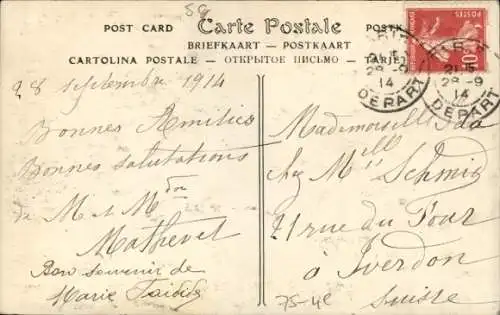 59
POST CARD Carte Postale POSTK
BRIEFKAART - POSTKAART
CARTOLINA POSTALE - ОТКРЫТОЕ ПИСЬМО - TARJE
POSTES
10
21 15
28-9
14
DEPART
21 15
28-9
14
DEPART
28 septembre 1914
Bonnes Amitiés
Bonnes salutations
de M et Mme
Mathevet
Bon souvenir de
Marie
Mademoiselle Ida
chez Mell Schmid
21 rue du Four
à Yverdon
Suisse
75-4e